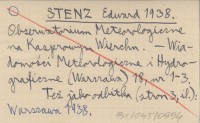 STENZ Edward 1938.
Obserwatorium Meteorologiczne
na Kasprowym Wierchu. - Wia-
domości Meteorologiczne i Hydro-
graficzne (Warszawa) 18, nr 1-3.
Też jako odbitka (stron 3, il.).
Warszawa 1938.